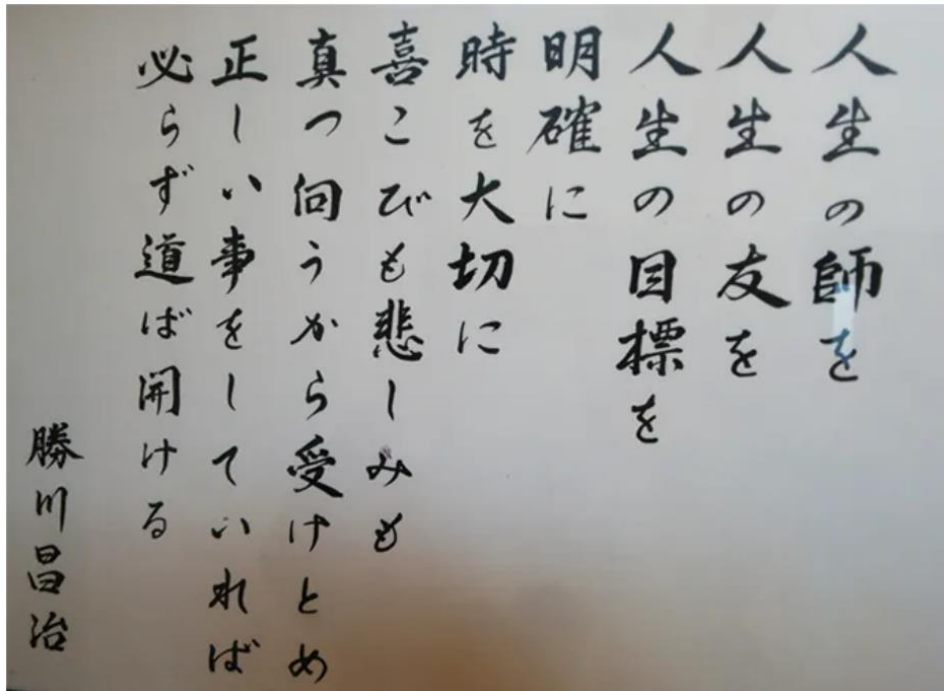 人生の師を
人生の友を
人生の目標を
明確に
時を大切に
喜こびも悲しみも
真つ向うから受けとめ
正しい事をしていれば
必らず道ば開ける
勝川昌治